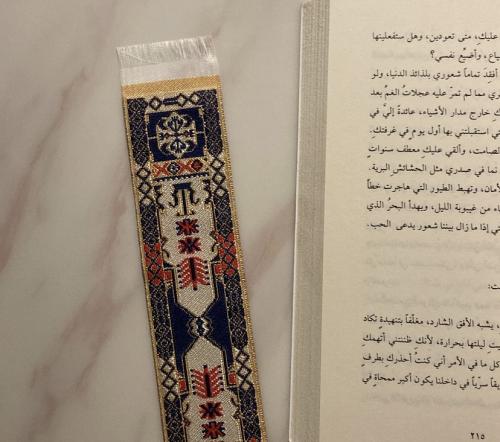 عليكِ، متى تعودين، وهل ستفعلينها
ياع، وأضيّع نفسي؟
أفقِدَ تماماً شعوري بلذائذ الدنيا، ولو
ري مما لم تمرّ عليه عجلاتُ الغمِّ بعد
كِ خارج مدار الأشياء، عائدةً إليَّ في
ي استقبلتني بها أول يومٍ في غرفتكِ.
الصامت، وألقي عليكِ معطف سنواتٍ
نما في صدري مثل الحشائش البرية.
لأمان، وتهبط الطيور التي هاجرت خطأً
اء من غيبوبة الليل، ويهدأ البحرُ الذي
ي إذا ما زال بيننا شعور يدعى الحب.
ت:
يشبه الأفق الشارد، مغلّفاً بتنهيدةٍ تكاد
يتِ ليلتها بحرارة، لأنكِ ظننتني أتهمكِ
كل ما في الأمر أني كنتُ أحذركِ بطرفٍ
يقاً سرّياً في داخلنا يكون أكبر ممحاةٍ في
٢١٥